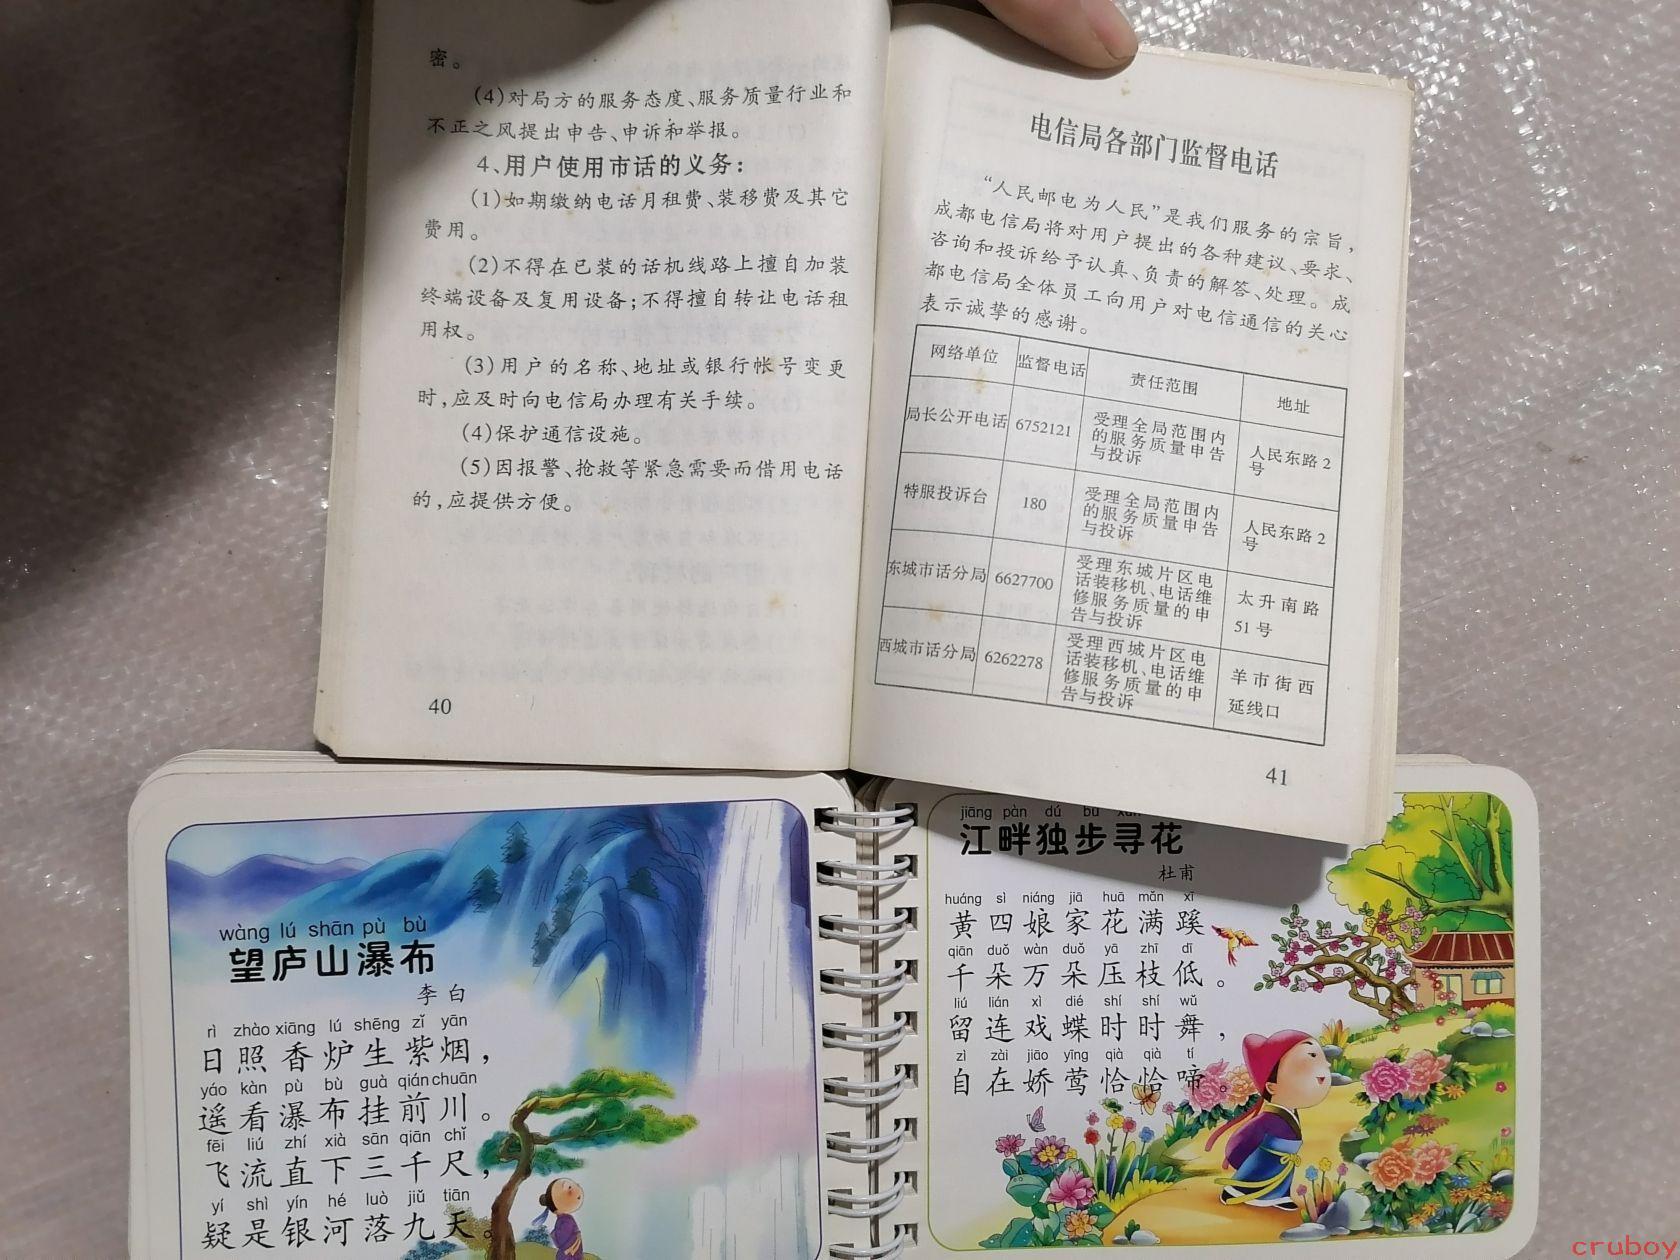 密。
(4)对局方的服务态度、服务质量行业和
不正之风提出申告、申诉和举报。
4、用户使用市话的义务:
(1)如期缴纳电话月租费、装移费及其它
费用。
(2)不得在已装的话机线路上擅自加装
终端设备及复用设备;不得擅自转让电话租
用权。
(3)用户的名称、地址或银行帐号变更
时,应及时向电信局办理有关手续。
(4)保护通信设施。
(5)因报警、抢救等紧急需要而借用电话
的,应提供方便。
40
电信局各部门监督电话
“人民邮电为人民”是我们服务的宗旨,
成都电信局将对用户提出的各种建议、要求、
咨询和投诉给予认真、负责的解答、处理。成
都电信局全体员工向用户对电信通信的关心
表示诚挚的感谢。
网络单位 监督电话 责任范围 地址
局长公开电话 6752121 受理全局范围内
的服务质量申告
与投诉
人民东路2
号
特服投诉台 180 受理全局范围内
的服务质量申告
与投诉
人民东路2
号
东城市话分局 6627700 受理东城片区电
话装移机、电话维
修服务质量的申
告与投诉
太升南路
51号
西城市话分局 6262278 受理西城片区电
话装移机、电话维
修服务质量的申
告与投诉
羊市街西
延线口
41
wàng lú shān pù bù
望庐山瀑布
李白
rì zhào xiāng lú shēng zǐ yān
日照香炉生紫烟,
yáo kàn pù bù guà qián chuān
遥看瀑布挂前川。
fēi liú zhí xià sān qiān chǐ
飞流直下三千尺,
yí shì yín hé luò jiǔ tiān
疑是银河落九天。
jiāng pàn dú bù xún
江畔独步寻花
杜甫
huáng sì niáng jiā huā mǎn xī
黄四娘家花满蹊
qiān duǒ wàn duǒ yā zhī dī
千朵万朵压枝低。
liú lián xì dié shí shí wǔ
留连戏蝶时时舞,
zì zài jiāo yīng qià qià tí
自在娇莺恰恰啼。
cruboy